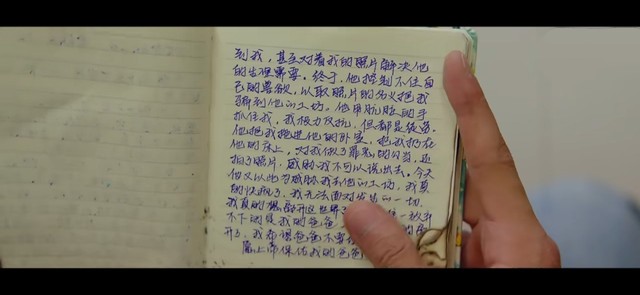 到我，甚至对着我的照片解决他
的生理需要。终于，他控制不住自
己的兽欲，以取照片的名义把我
骗到他的工坊。他用肮脏的手
抓住我，我极力反抗，但都是徒劳。
他把我拖进他的卧室，把我扔在
他的床上，对我做了罪恶的勾当，还
拍了照片，威胁我不可以说出去。今天
他又以此为威胁我去他的工坊，我真
的快疯了，我无法面对发生的一切，
我真的想离开这世界
不下的是我的爸爸
开了，我希望爸爸不要
愿上帝保佑我的爸爸